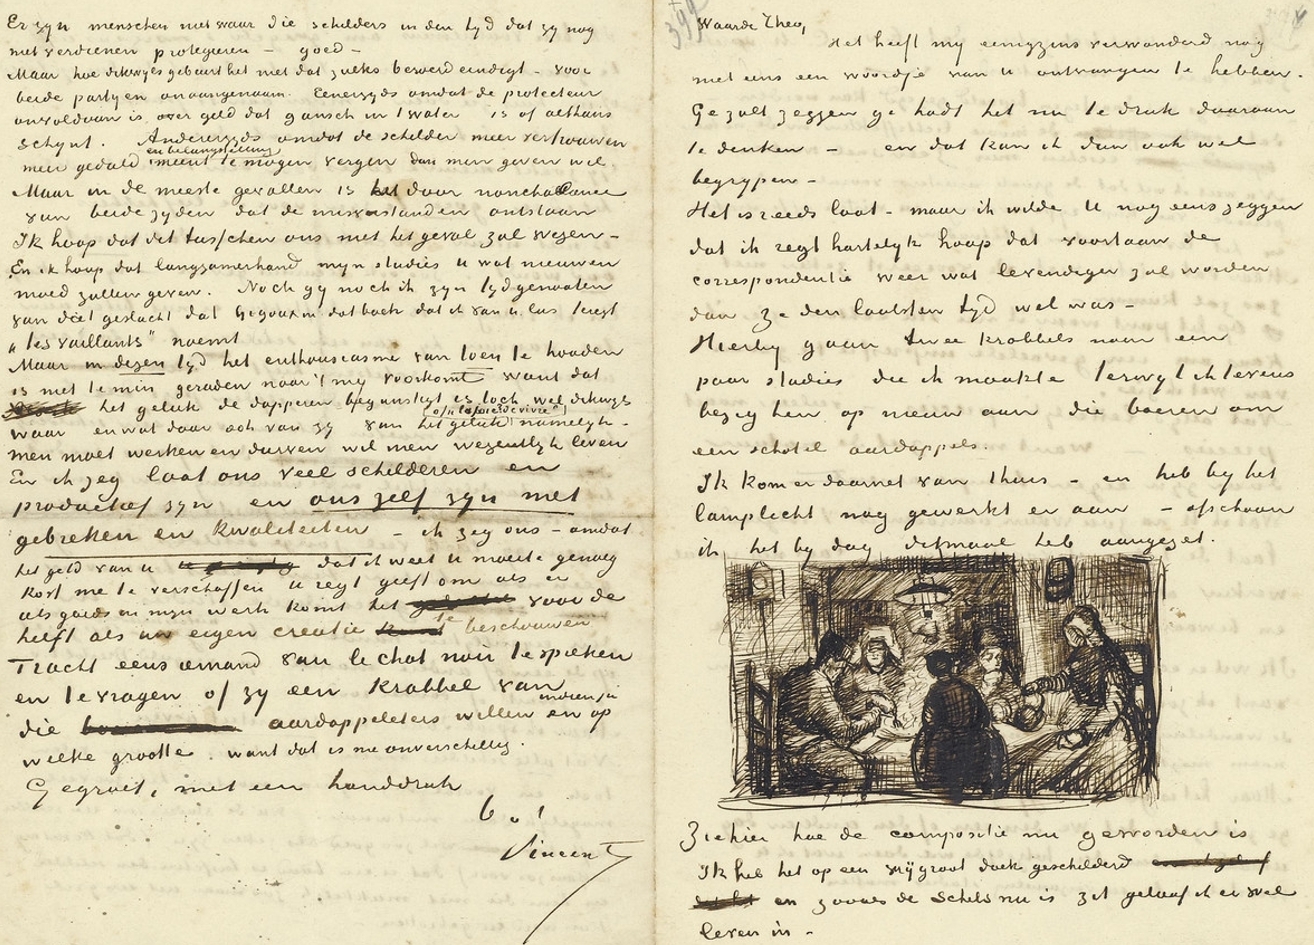 Er zyn menschen niet waar die schilders in den tyd dat zy nog
niet verdienen protegeren – goed –
Maar hoe dikwyls gebeurt het niet dat zulks beroerd eindigt – voor
beide partyen onaangenaam. Eenerzyds omdat de protecteur
onvoldaan is over geld dat gansch in 't water is of althans
schynt. Anderzyds omdat de schilder meer vertrouwen
en belangstelling
meer geduld meent te mogen vergen dan men geven wil
Maar in de meeste gevallen is het door nonchalance
van beide zyden dat de misverstanden ontstaan
Ik hoop dat dit tusschen ons niet het geval zal wezen –
En ik hoop dat langzamerhand myn studies U wat nieuwen
moed zullen geven. Noch gy noch ik zyn tydgenooten
van dàt geslacht dat Gigoux in dat boek dat ik van U las teregt
„les vaillants” noemt
Maar in dezen tyd het enthousiasme van toen te houden
is niet te min geraden naar 't my voorkomt want dat
het geluk de dapperen begunstigt is toch wel dikwyls
(of „la joie de vivre”)
waar en wat daar ook van zy van het geluk namelyk –
men moet werken en durven wil men wezentlyk leven
En ik zeg laat ons veel schilderen en
productief zyn en ons zelf zyn met
gebreken en kwaliteiten – ik zeg ons – omdat
het geld van U dat ik weet U moeite genoeg
kost me te verschaffen U regt geeft om als er
iets goeds in myn werk komt het voor de
helft als uw eigen creatie te beschouwen
Tracht eens iemand van le chat noir te spreken
en te vragen of zy een krabbel van
indien ja
die aardappeleters willen en op
welke grootte want dat is me onverschillig.
Gegroet, met een handdruk
t. à t.
Vincent
Waarde Theo,
Het heeft my eenigzins verwonderd nog
niet eens een woordje van U ontvangen te hebben.
Ge zult zeggen ge hadt het nu te druk daaraan
te denken – en dat kan ik dan ook wel
begrypen –
Het is reeds laat – maar ik wilde U nog eens zeggen
dat ik regt hartelyk hoop dat voortaan de
correspondentie weer wat levendiger zal worden
dan ze den laatsten tyd wel was –
Hierby gaan twee krabbels naar een
paar studies die ik maakte terwyl ik tevens
bezig ben op nieuw aan die boeren om
een schotel aardappels.
Ik kom er daarnet van thuis – en heb by het
lamplicht nog gewerkt er aan – ofschoon
ik het by dag ditmaal heb aangezet.
Ziehier hoe de compositie nu geworden is
Ik heb het op een vry groot doek geschilderd
en zooals de schets nu is zit geloof ik er wel
leven in –